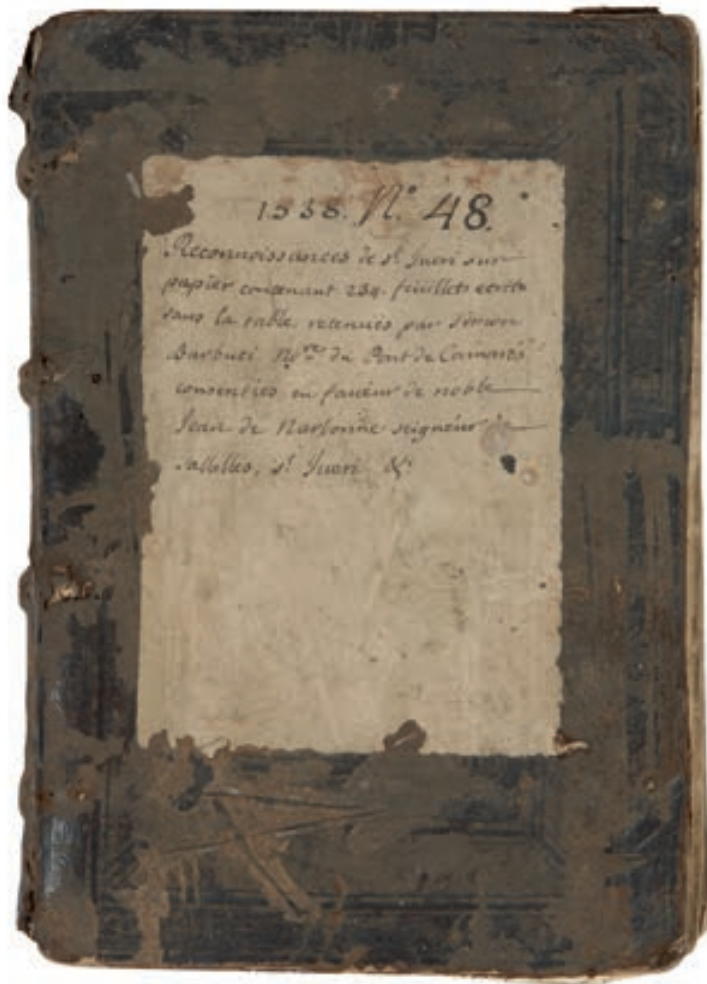 1538. N.° 48.
Reconnoissances de st Jueri sur
papier contenant 234. feuillets ecrits
sans la table, retenues par Simon
Barbuti Nore du Pont de Camarés
consenties en faveur de noble
Jean de Narbonne seigneur de
Sallelles, st Jueri &c